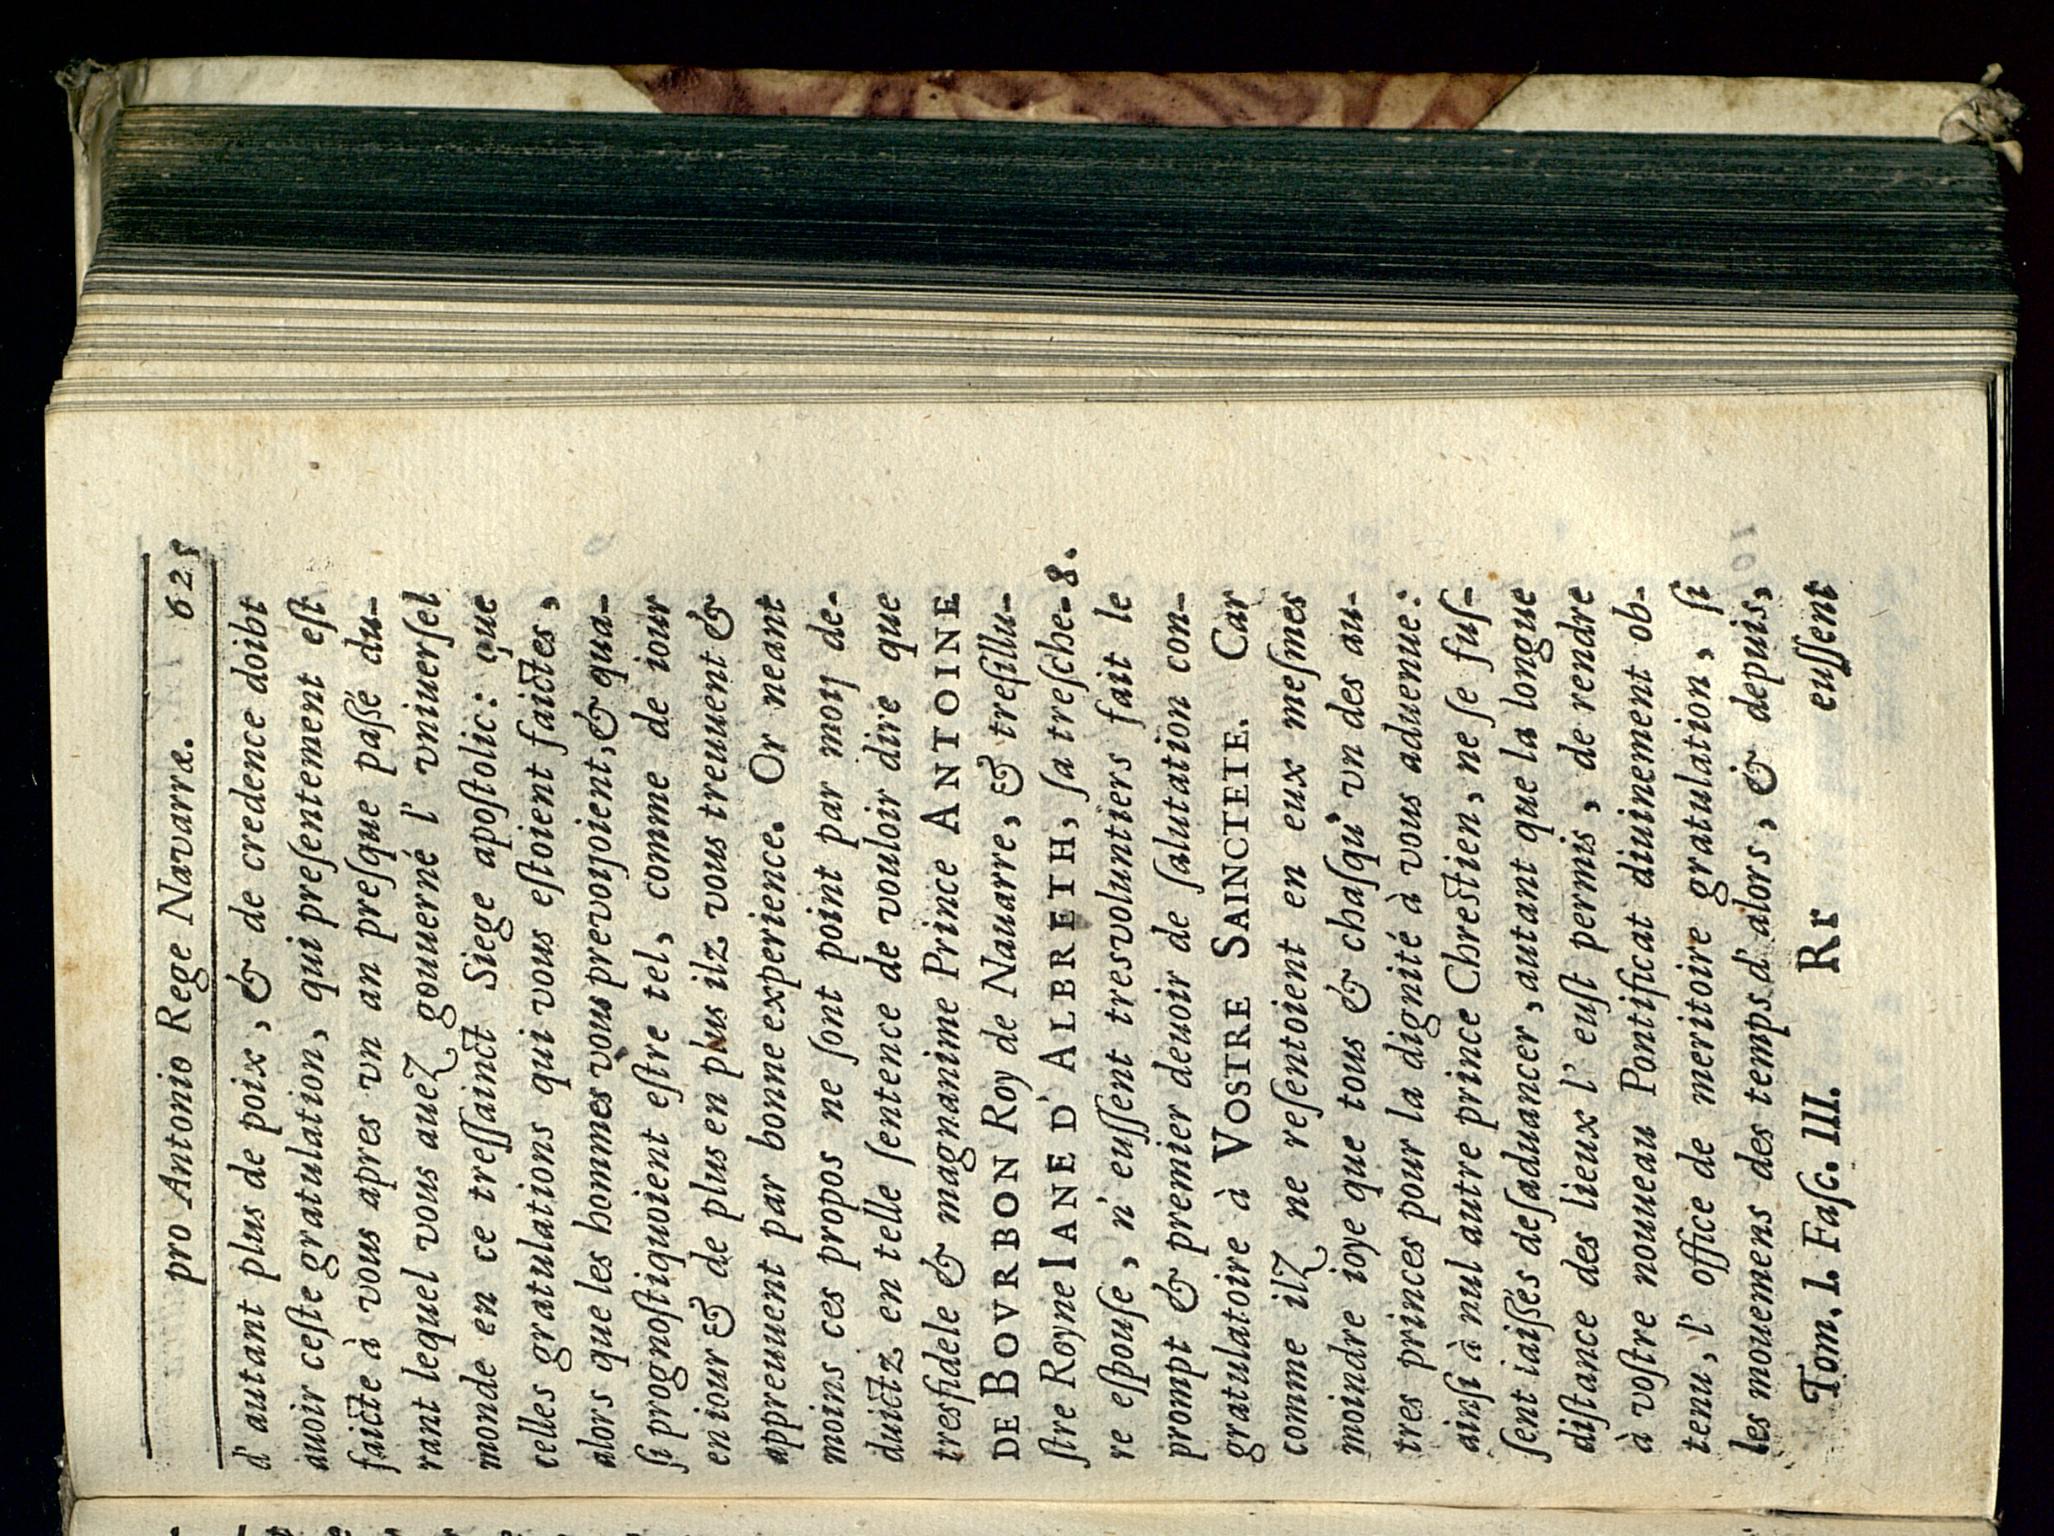 pro Antonio Rege Navarræ. 625
d' autant plus de poix, & de credence doibt
auoir ceſte gratulation, qui preſentement eſt
faicte à vous apres vn an preſque paſſé du-
rant lequel vous auez gouuerné l' vniuerſel
monde en ce treſſainct Siege apoſtolic: que
celles gratulations qui vous eſtoient faictes,
alors que les hommes vous prevoyoient, & qua-
ſi prognoſtiquoient eſtre tel, comme de iour
en iour & de plus en plus ilz vous treuuent &
appreuuent par bonne experience. Or neant
moins ces propos ne ſont point par moy de-
duictz en telle ſentence de vouloir dire que
tresfidele & magnanime Prince ANTOINE
DE BOVRBON Roy de Nauarre, & treſillu-
ſtre Royne IANE D' ALBRETH, ſa treſche- 8.
re eſpouſe, n' euſſent tresvoluntiers fait le
prompt & premier deuoir de ſalutation con-
gratulatoire à VOSTRE SANCTETE. Car
comme ilz ne reſentoient en eux meſmes
moindre ioye que tous & chaſqu' vn des au-
tres princes pour la dignité à vous aduenue:
ainſi à nul autre prince Chreſtien, ne ſe fuſ-
ſent iaiſſés deſaduancer, autant que la longue
diſtance des lieux l' euſt permis, de rendre
à voſtre nouueau Pontificat diuinement ob-
tenu, l' office de meritoire gratulation, ſi
les mouemens des temps d' alors, & depuis,
Tom. I. Faſc. III. Rr euſſent